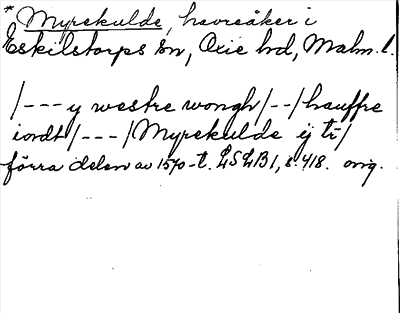 * Myrekulde, havreåker i
Eskilstorps sn, Oxie hd, Malm. l.
/--- y westre wongh/--/hauffre
iordt/---/Myrekulde ij tr/
förra delen av 1570-t. LSLB1, s. 418. orig.